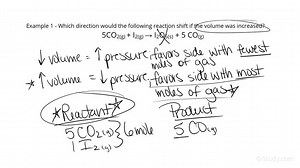 Example 1 - Which direction would the following reaction shift if the volume was increased?
5CO₂(g) + I₂(g) → I₂O₅(s) + 5 CO(g)
↓ volume = ↑ pressure, favors side with fewest moles of gas
* ↑ volume = ↓ pressure, favors side with most moles of gas *
*Reactant* Product
5 CO₂(g) } 6 mole 5 CO(g)
1 I₂(g)